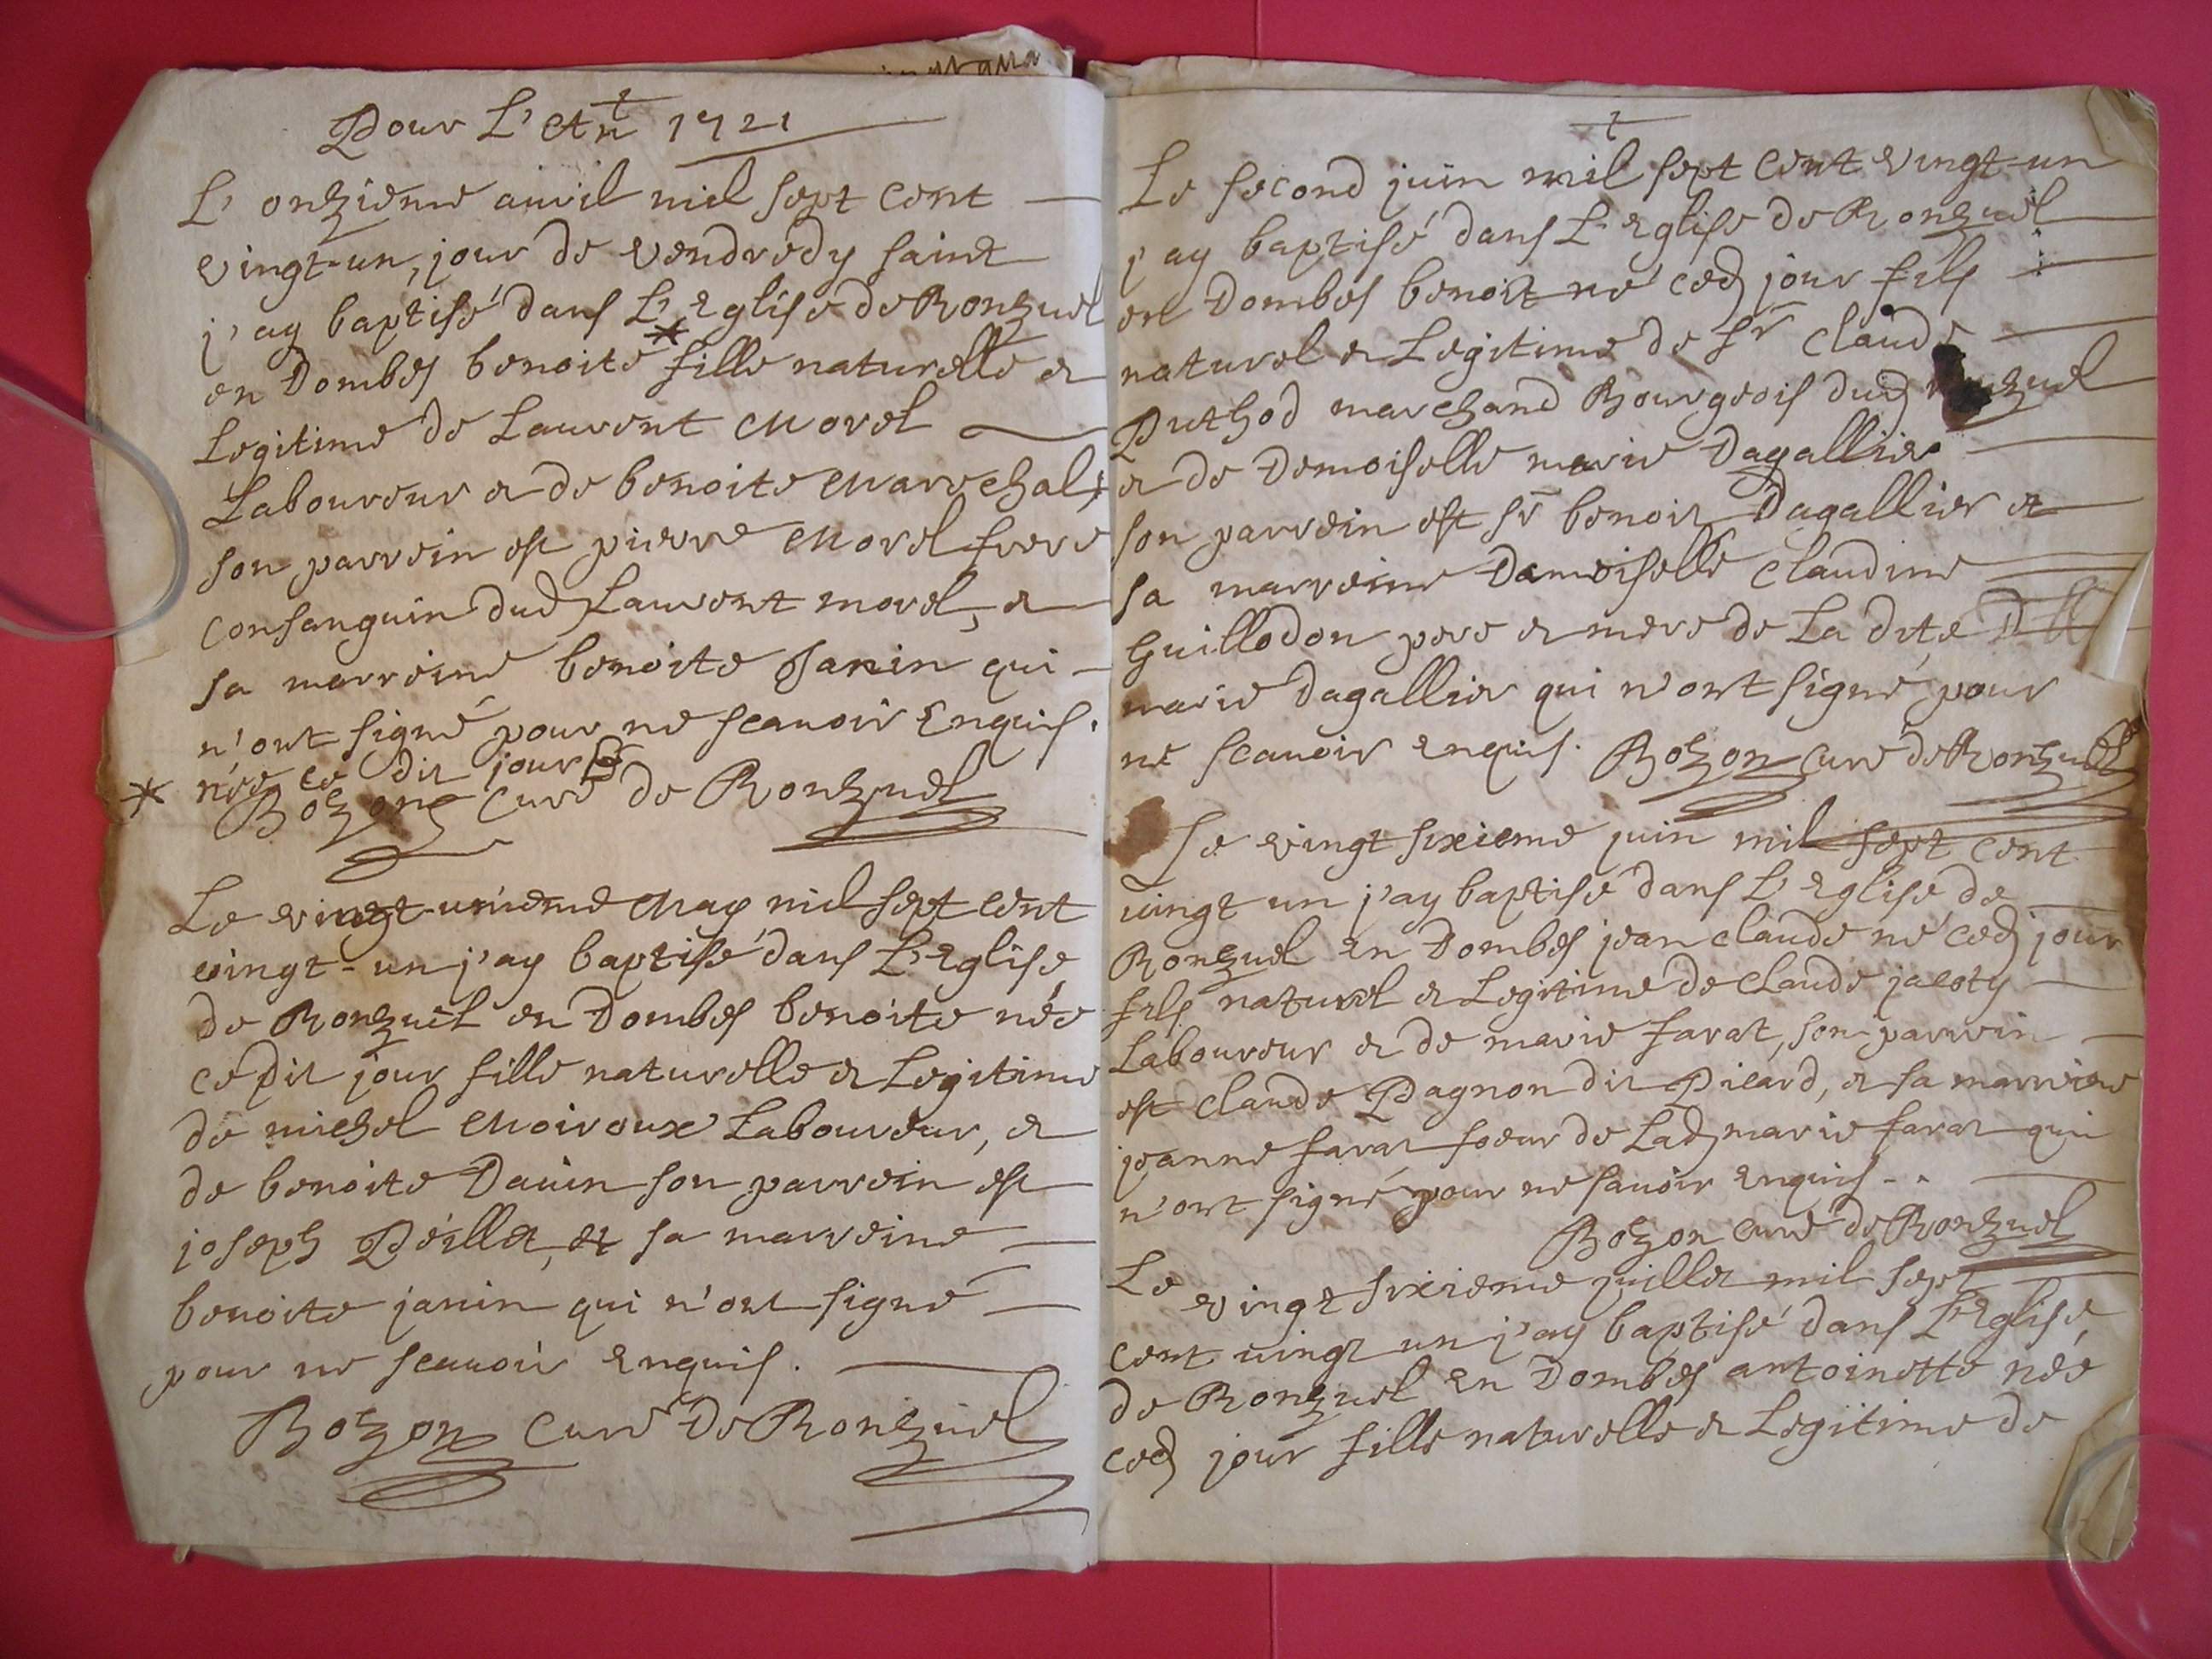 Pour L'An 1721
L' onzieme auril mil sept cent
vingt-un, jour de vendredy saint
j'ay baptisé dans L'Eglise de Ronzuel
en Dombes benoite * fille naturelle et
Legitime de Laurent Morel
Laboureur et de benoite Marechal ;
son parrein est pierre Morel frere
consanguin dud Laurent morel, et
sa marreine benoite Janin qui
n'ont signé pour ne scauoir Enquis.
* née ce dit jour
Bozon Curé de Ronzuel
Le vingt-unieme May mil sept cent
vingt-un j'ay baptisé dans L'Eglise
de Ronzuel en Dombes benoite née
ce dit jour fille naturelle et Legitime
de michel Moiroux Laboureur, et
de benoite Dauin son parrein est
joseph Péillet, et sa marreine
benoite janin qui n'ont signé
pour ne scauoir Enquis.
Bozon Curé De Ronzuel
Le second juin mil sept cent vingt-un
j'ay baptisé dans L'Eglise de Ronzuel
en Dombes benoit né ced jour fils
naturel et Legitime de Sr Claude
Puthod marchand Bourgeois dud Ronzuel
et de Demoiselle marie Dagallier
son parrein est Sr benoit Dagallier et
sa marreine Damoiselle Claudine
Guillodon pere et mere de La dite Dlle
marie Dagallier qui n'ont signé pour
ne scauoir Enquis. Bozon Curé de Ronzuel
Le vingt sixieme juin mil sept cent
vingt un j'ay baptisé dans L'Eglise de
Ronzuel En Dombes jean claude né ced jour
fils naturel et Legitime de Claude jacoty
Laboureur et de marie farat, son parrein
est Claude Pagnon dit Picard, et sa marreine
jeanne farat soeur de Lad marie farat qui
n'ont signé pour ne sauoir Enquis..
Bozon Curé de Ronzuel
Le vingt sixieme juillet mil sept
cent vingt un j'ay baptisé dans L'Eglise
de Ronzuel En Dombes antoinette née
ced jour fille naturelle et Legitime de